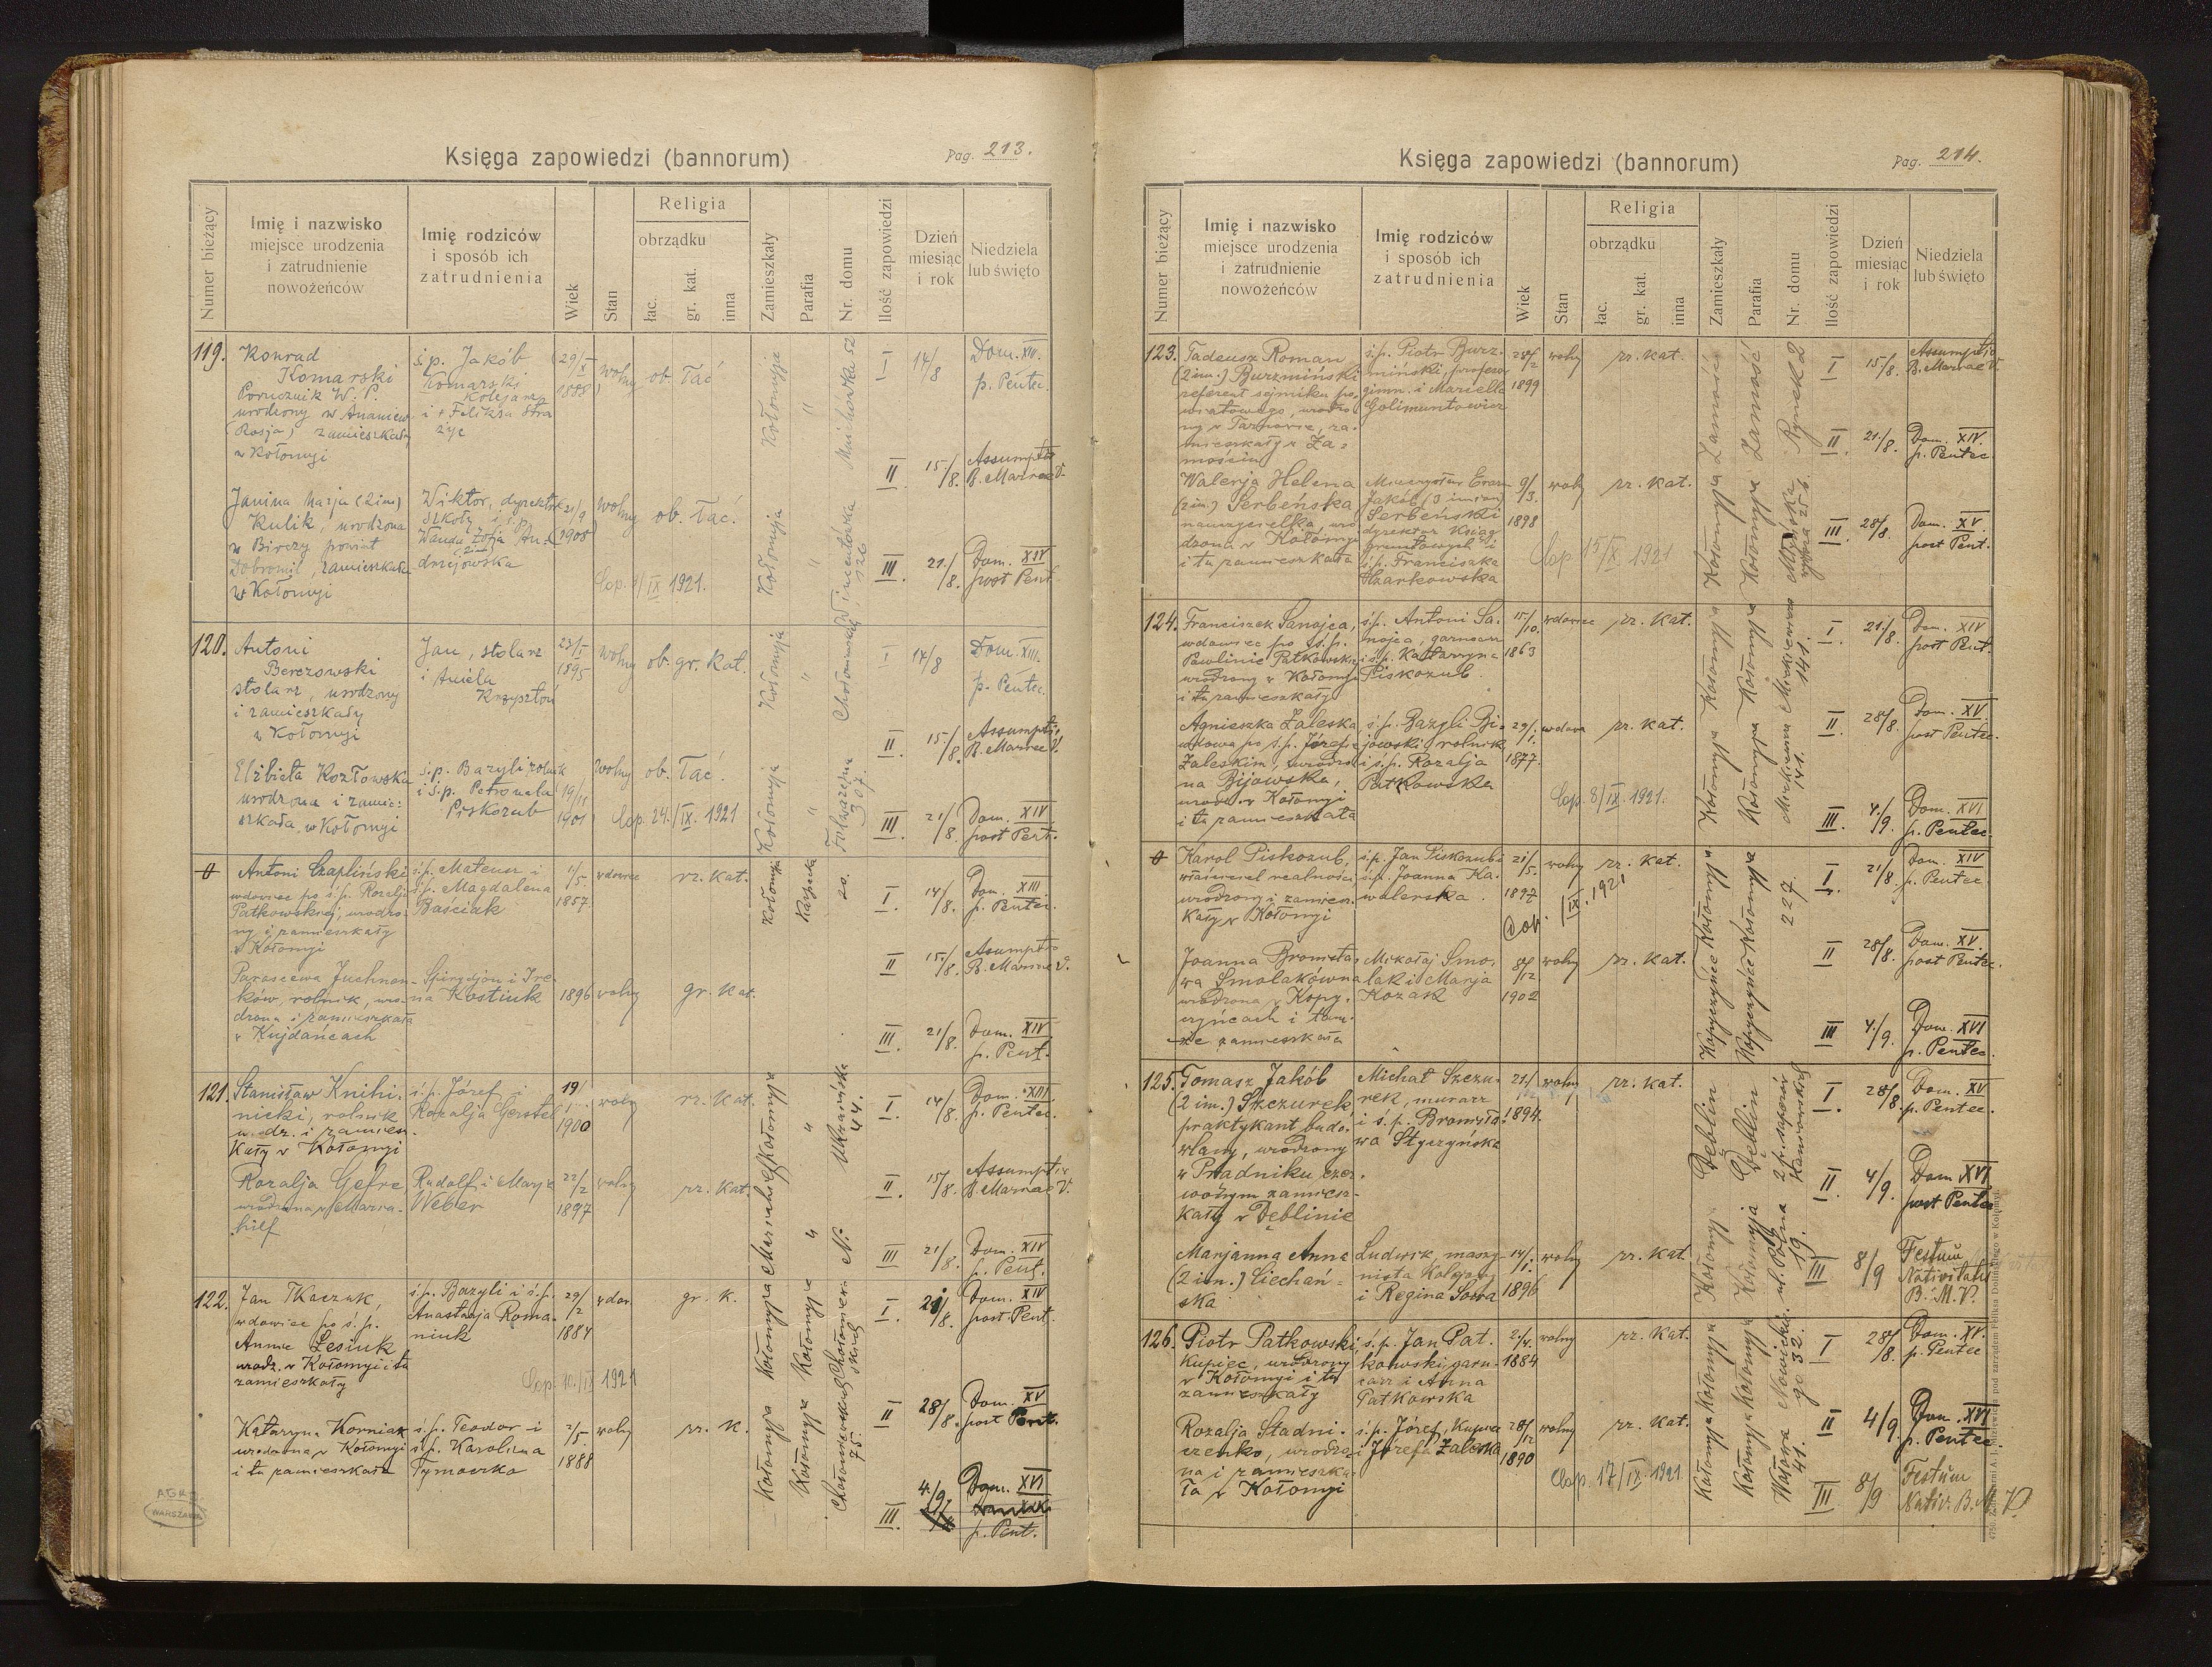 Księga zapowiedzi (bannorum)
Pag. 213.
Numer bieżący
Imię i nazwisko
miejsce urodzenia
i zatrudnienie
nowożeńców
Imię rodziców
i sposób ich
zatrudnienia
Wiek
Stan
Religia
obrządku
łac.
gr. kat.
inna
Zamieszkały
Parafia
Nr. domu
Ilość zapowiedzi
Dzień
miesiąc
i rok
Niedziela
lub święto
119.
Konrad
Komarski
Porucznik W. P.
urodzony w Ananiew
(Rosja) zamieszkały
w Kołomyi
ś.p. Jakób
Komarski
Kolejarz
i + Feliksa Stra
życ
29/X
1888
wolny
ob. łać
Kołomyja
"
52
I
14/8
Dom. XIII.
p. Pentec.
II
15/8.
Assumptio
B. Mariae V.
Janina Marja (2 im)
Kulik, urodzona
w Birczy powiat
Dobromil, zamieszkała
w Kołomyi
Wiktor, dyrektor
szkoły i ś.p.
Wanda Zofja An-
(2 im)
drzejowska
21/9
1908
wolny
ob. łać.
Kołomyja
"
Wincentówka
126
III.
21./8.
Dom. XIV
post Pent.
Cop. /IX 1921.
120.
Antoni
Berezowski
stolarz, urodzony
i zamieszkały
w Kołomyi
Jan, stolarz
i Aniela
Krzysztoń
23/
1895
wolny
ob. gr. kat.
Kołomyja
"
I
14/8
Dom. XIII.
p. Pentec.
II
15/8.
Assumptio
B. Mariae V.
Elżbieta Kozłowska
urodzona i zamie:
szkała w Kołomyi
ś.p. Bazyli rolnik
i ś.p. Petronela
Piskozub
19/
1901
wolny
ob. łać.
Cop. 24./IX. 1921
Kołomyja
"
307.
III
21/8
Dom. XIV
post Pent.
0
Antoni Czapliński
wdowiec po ś.p. Rozalji
Patkowskiej, urodzo-
ny i zamieszkały
w Kołomyi
ś.p. Mateusz i
ś.p. Magdalena
Baściak
1/5.
1857.
wdowiec
rz. kat.
Kołomyja
20.
I.
14/8.
Dom. XIII
p. Pentec.
II
15./8.
Asumptio
B. Mariae V.
Parascewa Juchnow-
ków, rolnik, uro-
dzona i zamieszkała
w Kujdańcach
Spirydjon i Ire-
na Kostiuk
1896
wolny
gr. kat.
III.
21/8.
Dom. XIV
p. Pent.
121.
Stanisław Knihi-
nicki, rolnik
urodz. i zamiesz-
kały w Kołomyi
ś.p. Józef i
Rozalja Gerstel
19/
1900
wolny
rz. kat.
Kołomyja
"
Ukraińska
44.
I.
14/8
Dom. XIII
p. Pentec.
Rozalja Gefre
urodzona w Maria-
hilf
Rudolf i Marja
Weber
22/2
1897
wolny
rz. kat.
Mariahilf
"
II
15/8.
Assumptio
B. Mariae V.
III
21/8.
Dom. XIV
p. Pent.
122.
Jan Tkaczuk,
wdowiec po ś.p.
Annie Lesiuk
urodz. w Kołomyi i tu
zamieszkały
ś.p. Bazyli i ś.p.
Anastazja Roma-
niuk
29/2
1884
wdow.
gr. k.
Cop. 10./IX 1921
Kołomyja
Kołomyja
I
21/8.
Dom. XIV
post Pent.
II
28/8.
Dom. XV
post Pent.
Kataryna Korniak
urodzona w Kołomyi
i tu zamieszkała
ś.p. Teodor i
ś.p. Karolina
Tymoczko
2/5.
1888
wolny
rz. k.
Kołomyja
Kołomyja
75.
III.
4/9.
Dom. XVI
p. Pent.
AGAD
WARSZAWA
Księga zapowiedzi (bannorum)
Pag. 214.
Numer bieżący
Imię i nazwisko
miejsce urodzenia
i zatrudnienie
nowożeńców
Imię rodziców
i sposób ich
zatrudnienia
Wiek
Stan
Religia
obrządku
łac.
gr. kat.
inna
Zamieszkały
Parafia
Nr. domu
Ilość zapowiedzi
Dzień
miesiąc
i rok
Niedziela
lub święto
123.
Tadeusz Roman
(2 im.) Burzmiński
referent sejmiku po-
wiatowego, urodzo-
ny w Tarnowie, za-
mieszkały w Za-
mościu
ś.p. Piotr Burz-
miński, profesor
gimn. i Mariella
Golimuntowicz
28/2
1899
wolny
rz. kat.
Zamość
Zamość
Rynek 2
I
15/8.
Assumptio
B. Mariae V.
II
21./8.
Dom. XIV.
p. Pentec.
Walerja Helena
(2 im.) Serbeńska
nauczycielka, uro-
dzona w Kołomyi
i tu zamieszkała
Mieczysław Eraz-
Jakób (3 imion)
Serbeński
dyrektor Ksiąg
gruntowych i
ś.p. Franciszka
Skarkowska
9/3.
1898
wolny
rz. kat.
Cop 15/IX 1921
Kołomyja
Kołomyja
III.
28/8.
Dom. XV
post Pent.
124.
Franciszek Sanojca,
wdowiec po ś.p.
Paulinie Patkowskiej
urodzony w Kołomyi
i tu zamieszkały
ś.p. Antoni Sa-
nojca, garncarz
i ś.p. Katarzyna
Piskozub.
15/10.
1863
wdowiec
rz. kat.
Kołomyja
Kołomyja
Mickiewicza
141.
I.
21/8.
Dom. XIV
post Pent.
Agnieszka Zaleska
wdowa po ś.p. Józefie
Zaleskim, urodzo-
na Bijowska,
urodz. w Kołomyi
i tu zamieszkała
ś.p. Bazyli Bi-
jowski, rolnik
i ś.p. Rozalja
Patkowska
29/1.
1877.
wdowa
rz. kat.
Cop. 8/IX. 1921.
Kołomyja
Kołomyja
Mickiewicza
141.
II
28/8.
Dom. XV.
post Pentec.
III.
4/9.
Dom. XVI
p. Pentec.
0
Karol Piskozub,
właściciel realności
urodzony i zamiesz-
kały w Kołomyi
ś.p. Jan Piskozub i
ś.p. Joanna Ka-
walerska
21/5.
1897
wolny
rz. kat.
IX. 1921
Kołomyja
Kołomyja
227.
I.
21/8
Dom. XIV
p. Pentec
II
28/8.
Dom. XV.
post Pentec.
Joanna Bronisła-
wa Smolakówna
urodzona w Kopy-
czyńcach i tam-
że zamieszkała
Mikołaj Smo-
lak i Marja
Kozak
8/12
1902
wolny
rz. kat.
Kopyczyńce
Kopyczyńce
III
4./9.
Dom. XVI
p. Pentec.
125.
Tomasz Jakób
(2 im.) Szczurek
praktykant budo-
wlany, urodzony
w Prądniku czer-
wonym zamiesz-
kały w Dęblinie
Michał Szczu-
rek, murarz
i ś.p. Bronisła-
wa Styczyńska
21./
1894.
wolny
rz. kat.
Dęblin
Dęblin
I
28/8.
Dom. XV
p. Pentec.
II
4/9.
Dom XVI
post Pentec
Marjanna Anna
(2 im.) Ciechań-
ska
Ludwik, maszy-
nista Kolejowy
i Regina Sowa
14/1.
1896
wolny
rz. kat.
Kołomyja
Kołomyja
19.
III
8/9
Festum
Nativitatis
B. M. V.
126.
Piotr Patkowski
Kupiec, urodzony
w Kołomyi i tu
zamieszkały
ś.p. Jan Pat-
kowski, garn-
carz i Anna
Patkowska
2./4.
1884
wolny
rz. kat.
Kołomyja
Kołomyja
32.
I
28/8
Dom. XV.
p. Pentec
Rozalja Stadni-
czenko, urodzo-
na i zamieszka-
ła w Kołomyi
ś.p. Józef, Kupiec
i Józefa Zaleska
28/12
1890
wolny
rz. kat.
Cop. 17/IX. 1921
Kołomyja
Kołomyja
41.
II
4/9.
Dom. XVI
p. Pentec.
III
8/9
Festum
Nativ. B. M. V.